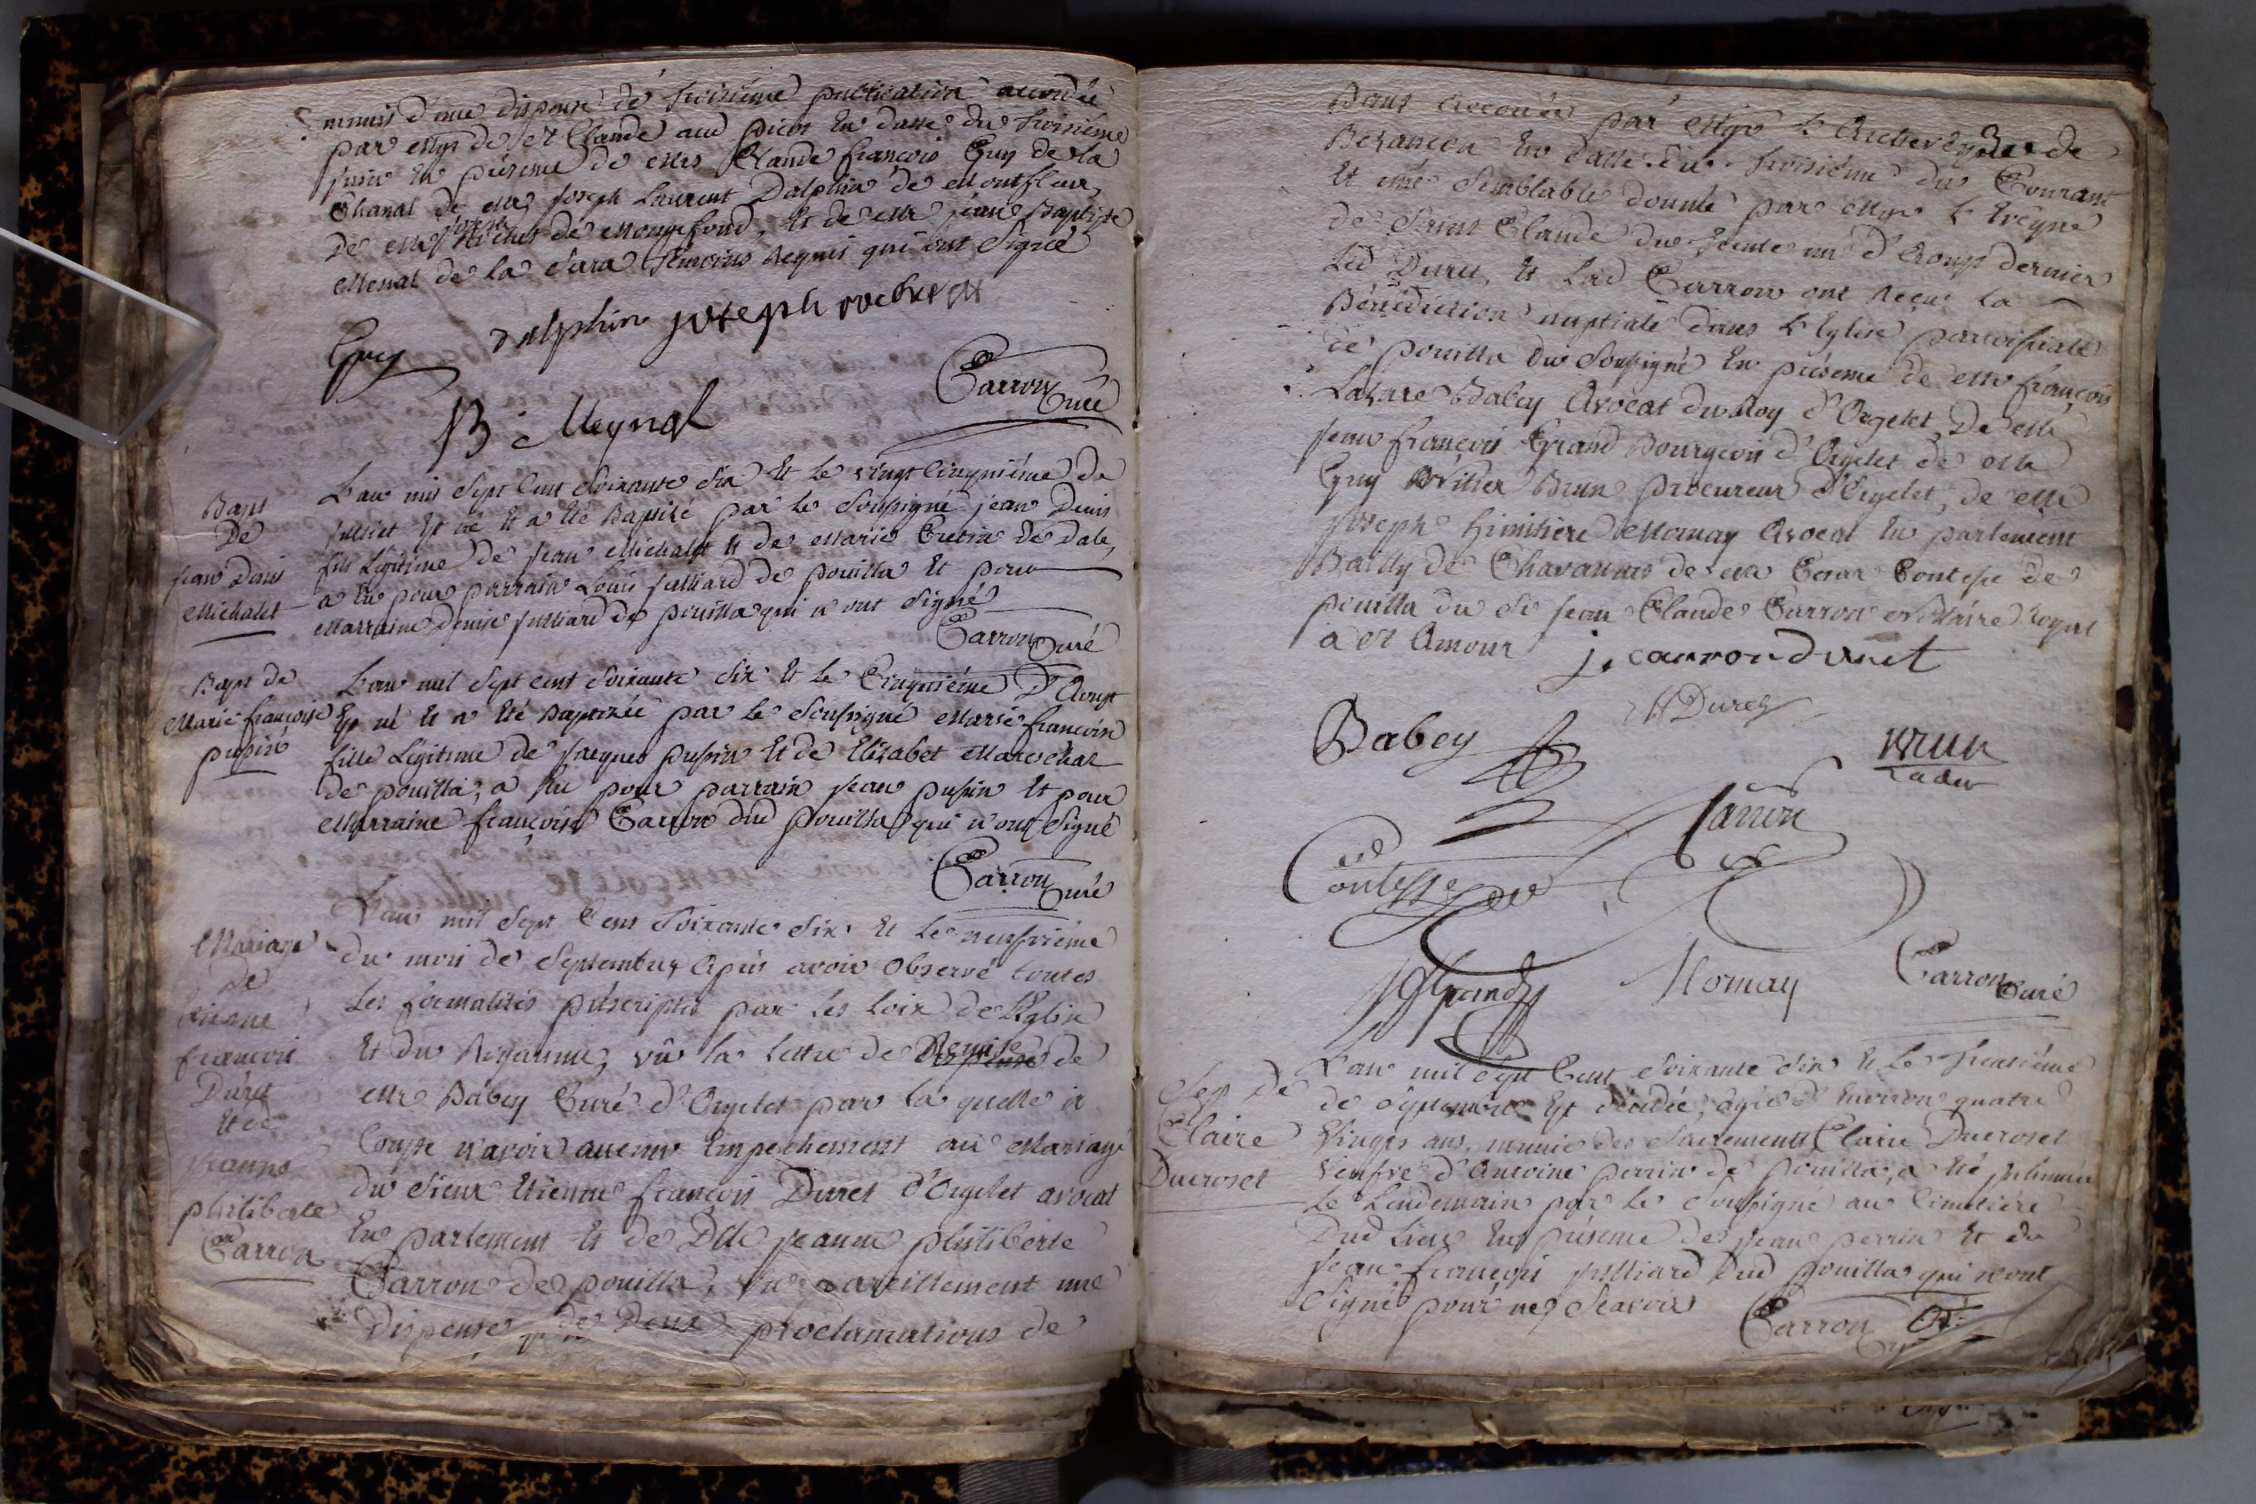 munis d'une dispense de troisième publication accordée
par Mgr de St Claude aud Picot en datte du troisième
juin en présence de Mrs Claude françois Guy de la
Chanal de Mr Joseph Laurent Dalphin de Montfleur,
De Mr Joseph Rochet de Mongefond, et de Mr jean Baptiste
Mesnal de la Sara témoins requis qui ont signé
Guy dalphin joseph rochet
B Meynal
Carron Curé
Bapt
De
jean Denis
Michalet
L'an mil Sept Cent Soixante Six Et le vingt Cinquième de
juillet Est né Et a Eté Baptisé par le Soussigné jean Denis
fils Légitime de jean Michalet Et de Marie Cretin de Dale,
a Eu pour parrain Louis julliard de pouilla Et pour
Marraine Denise julliard de pouilla qui n'ont Signé
Carron Curé
Bapt de
Marie françoise
pupin
L'an mil Sept cent Soixante Six Et le Cinquième D'Aoust
Est né Et a Eté Baptisée par le Soussigné Marie françoise
fille Légitime de jacques pupin Et de Elizabet Marechal
de pouilla, a Eu pour parrain jean pupin Et pour
Marraine françoise Carron dud pouilla qui n'ont Signé
Carron Curé
Mariage
De
Etienne
françois
Duret
Et de
jeanne
philiberte
Carron
L'an mil Sept Cent Soixante Six Et le neufvième
du mois de Septembre Après avoir observé toutes
les formalités préscriptes par les Loix de l'Eglise
Et du Royaume, vû la Lettre de Remise de
Mr Babey Curé d'Orgelet par la quelle il
Conste n'avoir aucun Empechement au Mariage
du Sieur Etienne françois Duret d'Orgelet avocat
En parlement Et de Dlle jeanne philiberte
Carron de pouilla, vu pareillement une
Dispense de Deux proclamations de
Bans accordée par Mgr L'Archevêque de
Besancon En datte du troisième du Courant
Et une Semblable donnée par Mgr L'Eveque
de Saint Claude du trente un d'Aoust dernier
Led Duret, Et Lad Carron ont Reçu La
Bénédiction nuptiale dans L'Eglise paroissiale
de pouilla du Soussigné En présence de Mr françois
Lazare Babey Avocat du Roy d'Orgelet, De Mr
jean françois Grand Bourgeois d'Orgelet de Mr
Guy Brun procureur d'Orgelet, de Mr
joseph himitiere Mornay Avocat En parlement
Bailly de Chavannes de Mr Contesse de
pouilla du Sr jean Claude Carron Nottaire royal
a St Amour j. carron duret
Duret
Babey
Brun
Carron
Contesse
Grand
Mornay
Carron Curé
Sep de
Claire
Ducroset
L'an mil Sept Cent Soixante Six Et Le trentième
de Septembre Est décédée, agée d'Environ quatre
Vingts ans, munie des Sacrements Claire Ducroset
Veufve d'Antoine perrin de pouilla, a Eté Inhumée
Le Lendemain par Le Soussigné au Cimetière
Dud Lieu En présence de jean perrin Et de
jean françois julliard dud pouilla qui n'ont
Signé pour ne Scavoir Carron